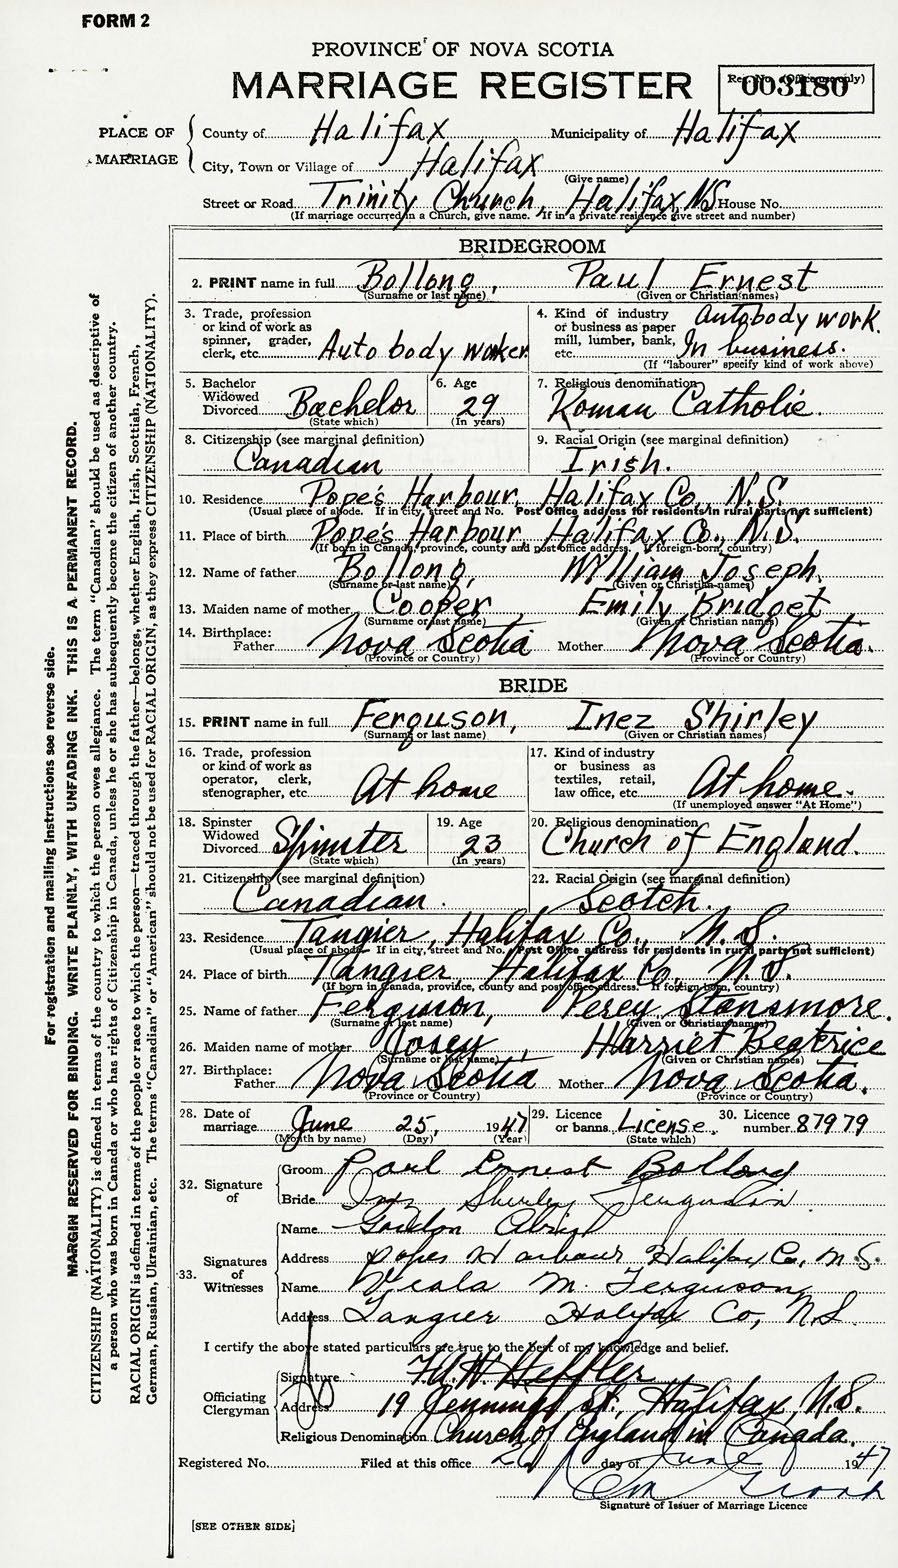 FORM 2
PROVINCE OF NOVA SCOTIA
MARRIAGE REGISTER
Reg. No. (Office use only)
003180
PLACE OF MARRIAGE
County of Halifax Municipality of Halifax
City, Town or Village of Halifax
(Give name)
Street or Road Trinity Church, Halifax, N.S. House No.
(If marriage occurred in a Church, give name. If in a private residence give street and number)
BRIDEGROOM
2. PRINT name in full Bollong, Paul Ernest
(Surname or last name) (Given or Christian names)
3. Trade, profession or kind of work as spinner, grader, clerk, etc. Auto body worker
4. Kind of industry or business as paper mill, lumber, bank, etc. Autobody work. In business.
(If "labourer" specify kind of work above)
5. Bachelor Widowed Divorced Bachelor
(State which)
6. Age 29
(In years)
7. Religious denomination Roman Catholic.
8. Citizenship (see marginal definition) Canadian
9. Racial Origin (see marginal definition) Irish.
10. Residence Pope's Harbour, Halifax Co., N.S.
(Usual place of abode. If in city, street and No. Post Office address for residents in rural parts not sufficient)
11. Place of birth Pope's Harbour, Halifax Co., N.S.
(If born in Canada, province, county and post office address. If foreign-born, country)
12. Name of father Bollong, William Joseph.
(Surname or last name) (Given or Christian names)
13. Maiden name of mother Cooper Emily Bridget
(Surname or last name) (Given or Christian names)
14. Birthplace: Father Nova Scotia Mother Nova Scotia.
(Province or Country) (Province or Country)
BRIDE
15. PRINT name in full Ferguson, Inez Shirley
(Surname or last name) (Given or Christian names)
16. Trade, profession or kind of work as operator, clerk, stenographer, etc. At home
17. Kind of industry or business as textiles, retail, law office, etc. At home.
(If unemployed answer "At Home")
18. Spinster Widowed Divorced Spinster
(State which)
19. Age 23
(In years)
20. Religious denomination Church of England.
21. Citizenship (see marginal definition) Canadian.
22. Racial Origin (see marginal definition) Scotch.
23. Residence Tangier, Halifax Co., N.S.
(Usual place of abode. If in city, street and No. Post Office address for residents in rural parts not sufficient)
24. Place of birth Tangier Halifax Co., N.S.
(If born in Canada, province, county and post office address. If foreign-born, country)
25. Name of father Ferguson, Percy Stansmore.
(Surname or last name) (Given or Christian names)
26. Maiden name of mother Josey, Harriet Beatrice
(Surname or last name) (Given or Christian names)
27. Birthplace: Father Nova Scotia Mother Nova Scotia.
(Province or Country) (Province or Country)
28. Date of marriage June 25, 1947
(Month by name) (Day) (Year)
29. Licence or banns License.
(State which)
30. Licence number 87979
32. Signature of
Groom Paul Ernest Bollong
Bride Inez Shirley Ferguson
33. Signatures of Witnesses
Name Gordon
Address Popes Harbour Halifax Co, N.S.
Name Viola M. Ferguson
Address Tangier Halifax Co, N.S.
I certify the above stated particulars are true to the best of my knowledge and belief.
Officiating Clergyman
Signature Heffler
Address 19 Jennings St., Halifax, N.S.
Religious Denomination Church of England in Canada.
Registered No. Filed at this office day of June 1947
Signature of Issuer of Marriage Licence
[SEE OTHER SIDE]
For registration and mailing instructions see reverse side.
MARGIN RESERVED FOR BINDING. WRITE PLAINLY, WITH UNFADING INK. THIS IS A PERMANENT RECORD.
CITIZENSHIP (NATIONALITY) is defined in terms of the country to which the person owes allegiance. The term "Canadian" should be used as descriptive of
a person who was born in Canada or who has rights of Citizenship in Canada, unless he or she has subsequently become the citizen of another country.
RACIAL ORIGIN is defined in terms of the people or race to which the person—traced through the father—belongs, whether English, Irish, Scottish, French,
German, Russian, Ukrainian, etc. The terms "Canadian" or "American" should not be used for RACIAL ORIGIN, as they express CITIZENSHIP (NATIONALITY).